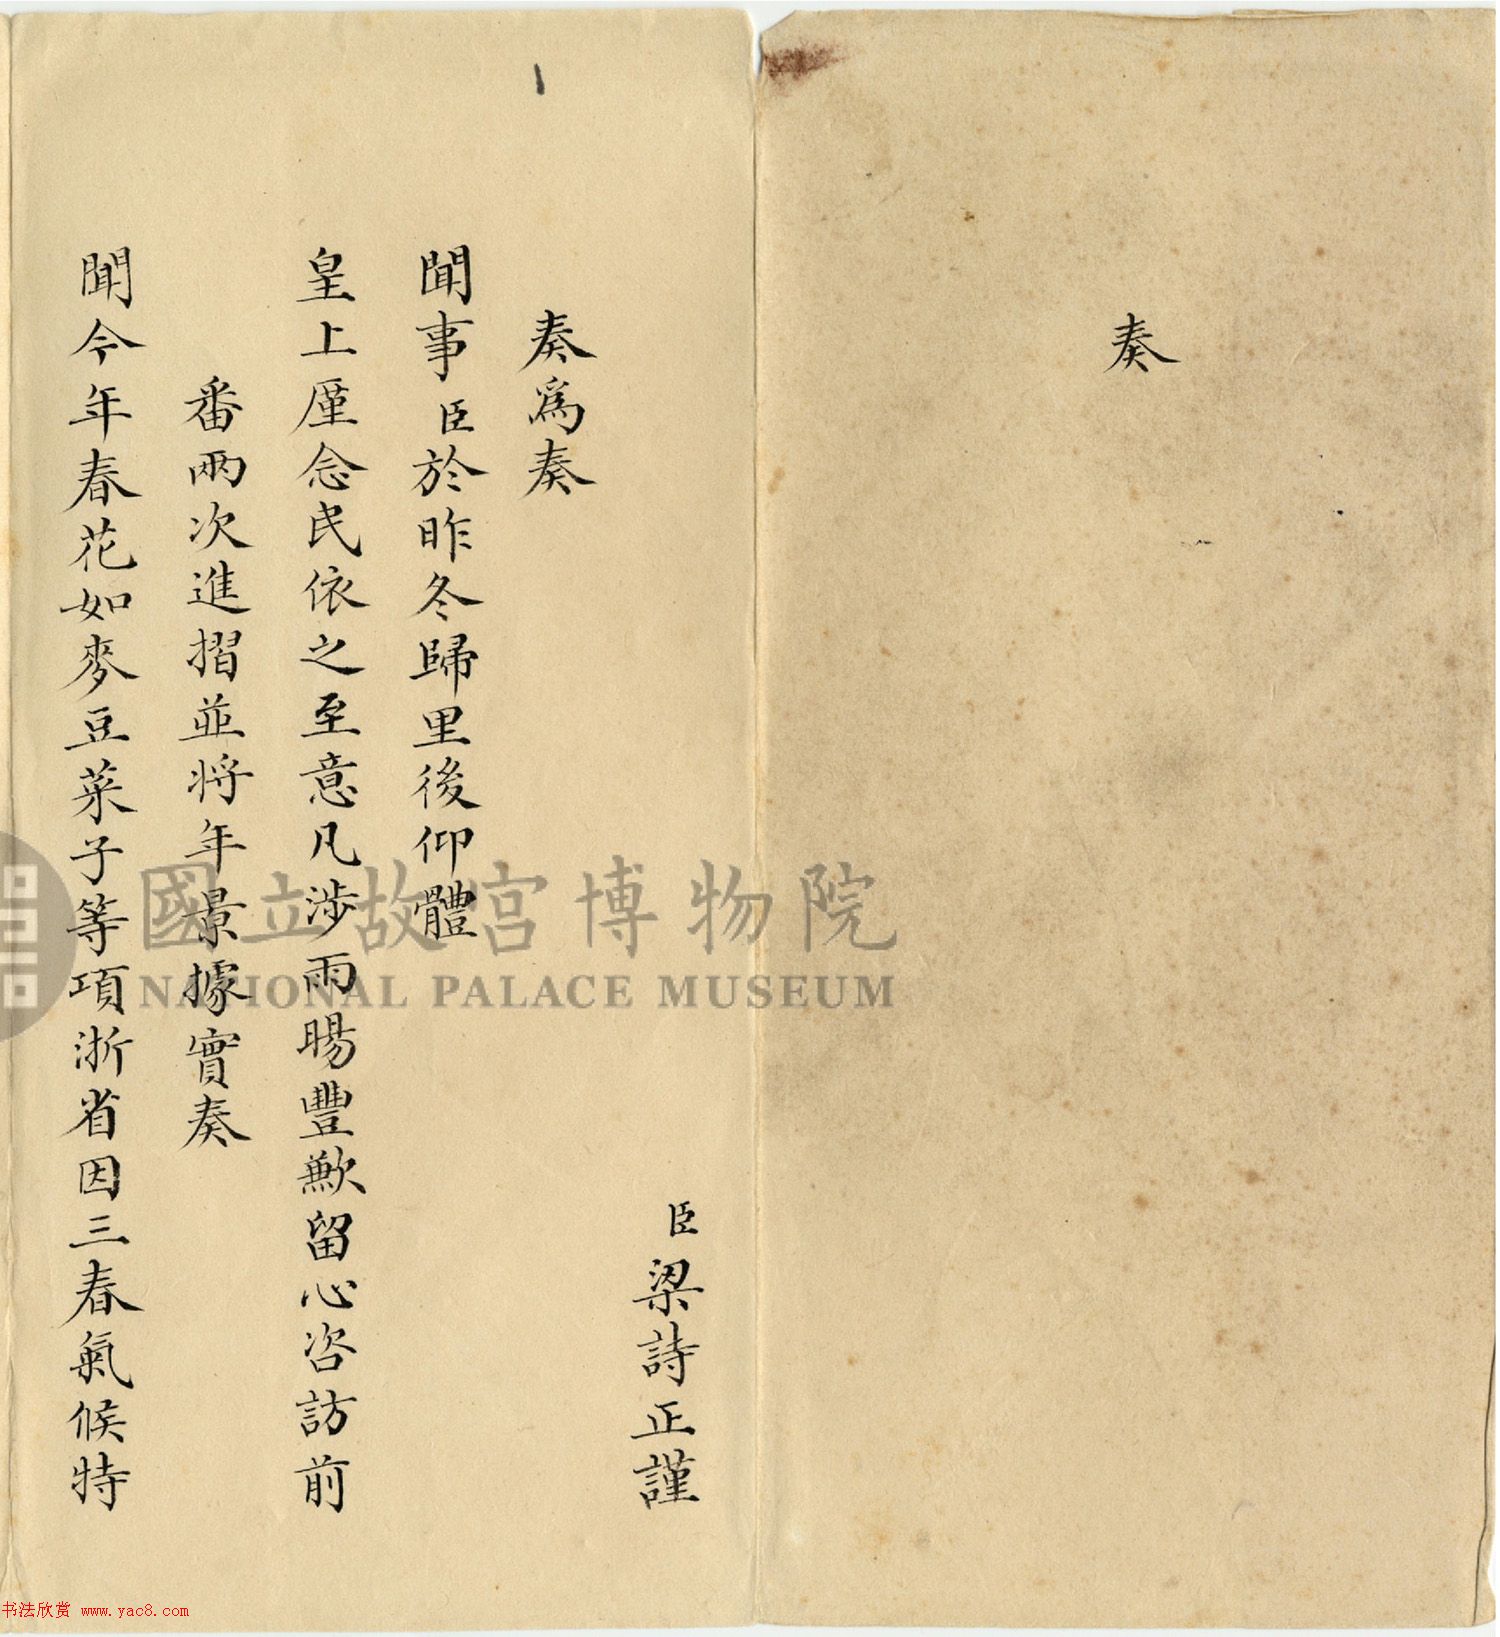 奏
臣梁詩正謹
奏爲奏
聞事臣於昨冬歸里後仰體
皇上廑念民依之至意凡涉雨暘豐歉留心咨訪前
番兩次進摺並將年景據實奏
聞今年春花如麥豆菜子等項浙省因三春氣候特
國立故宮博物院
NATIONAL PALACE MUSEUM
书法欣赏 www.yac8.com